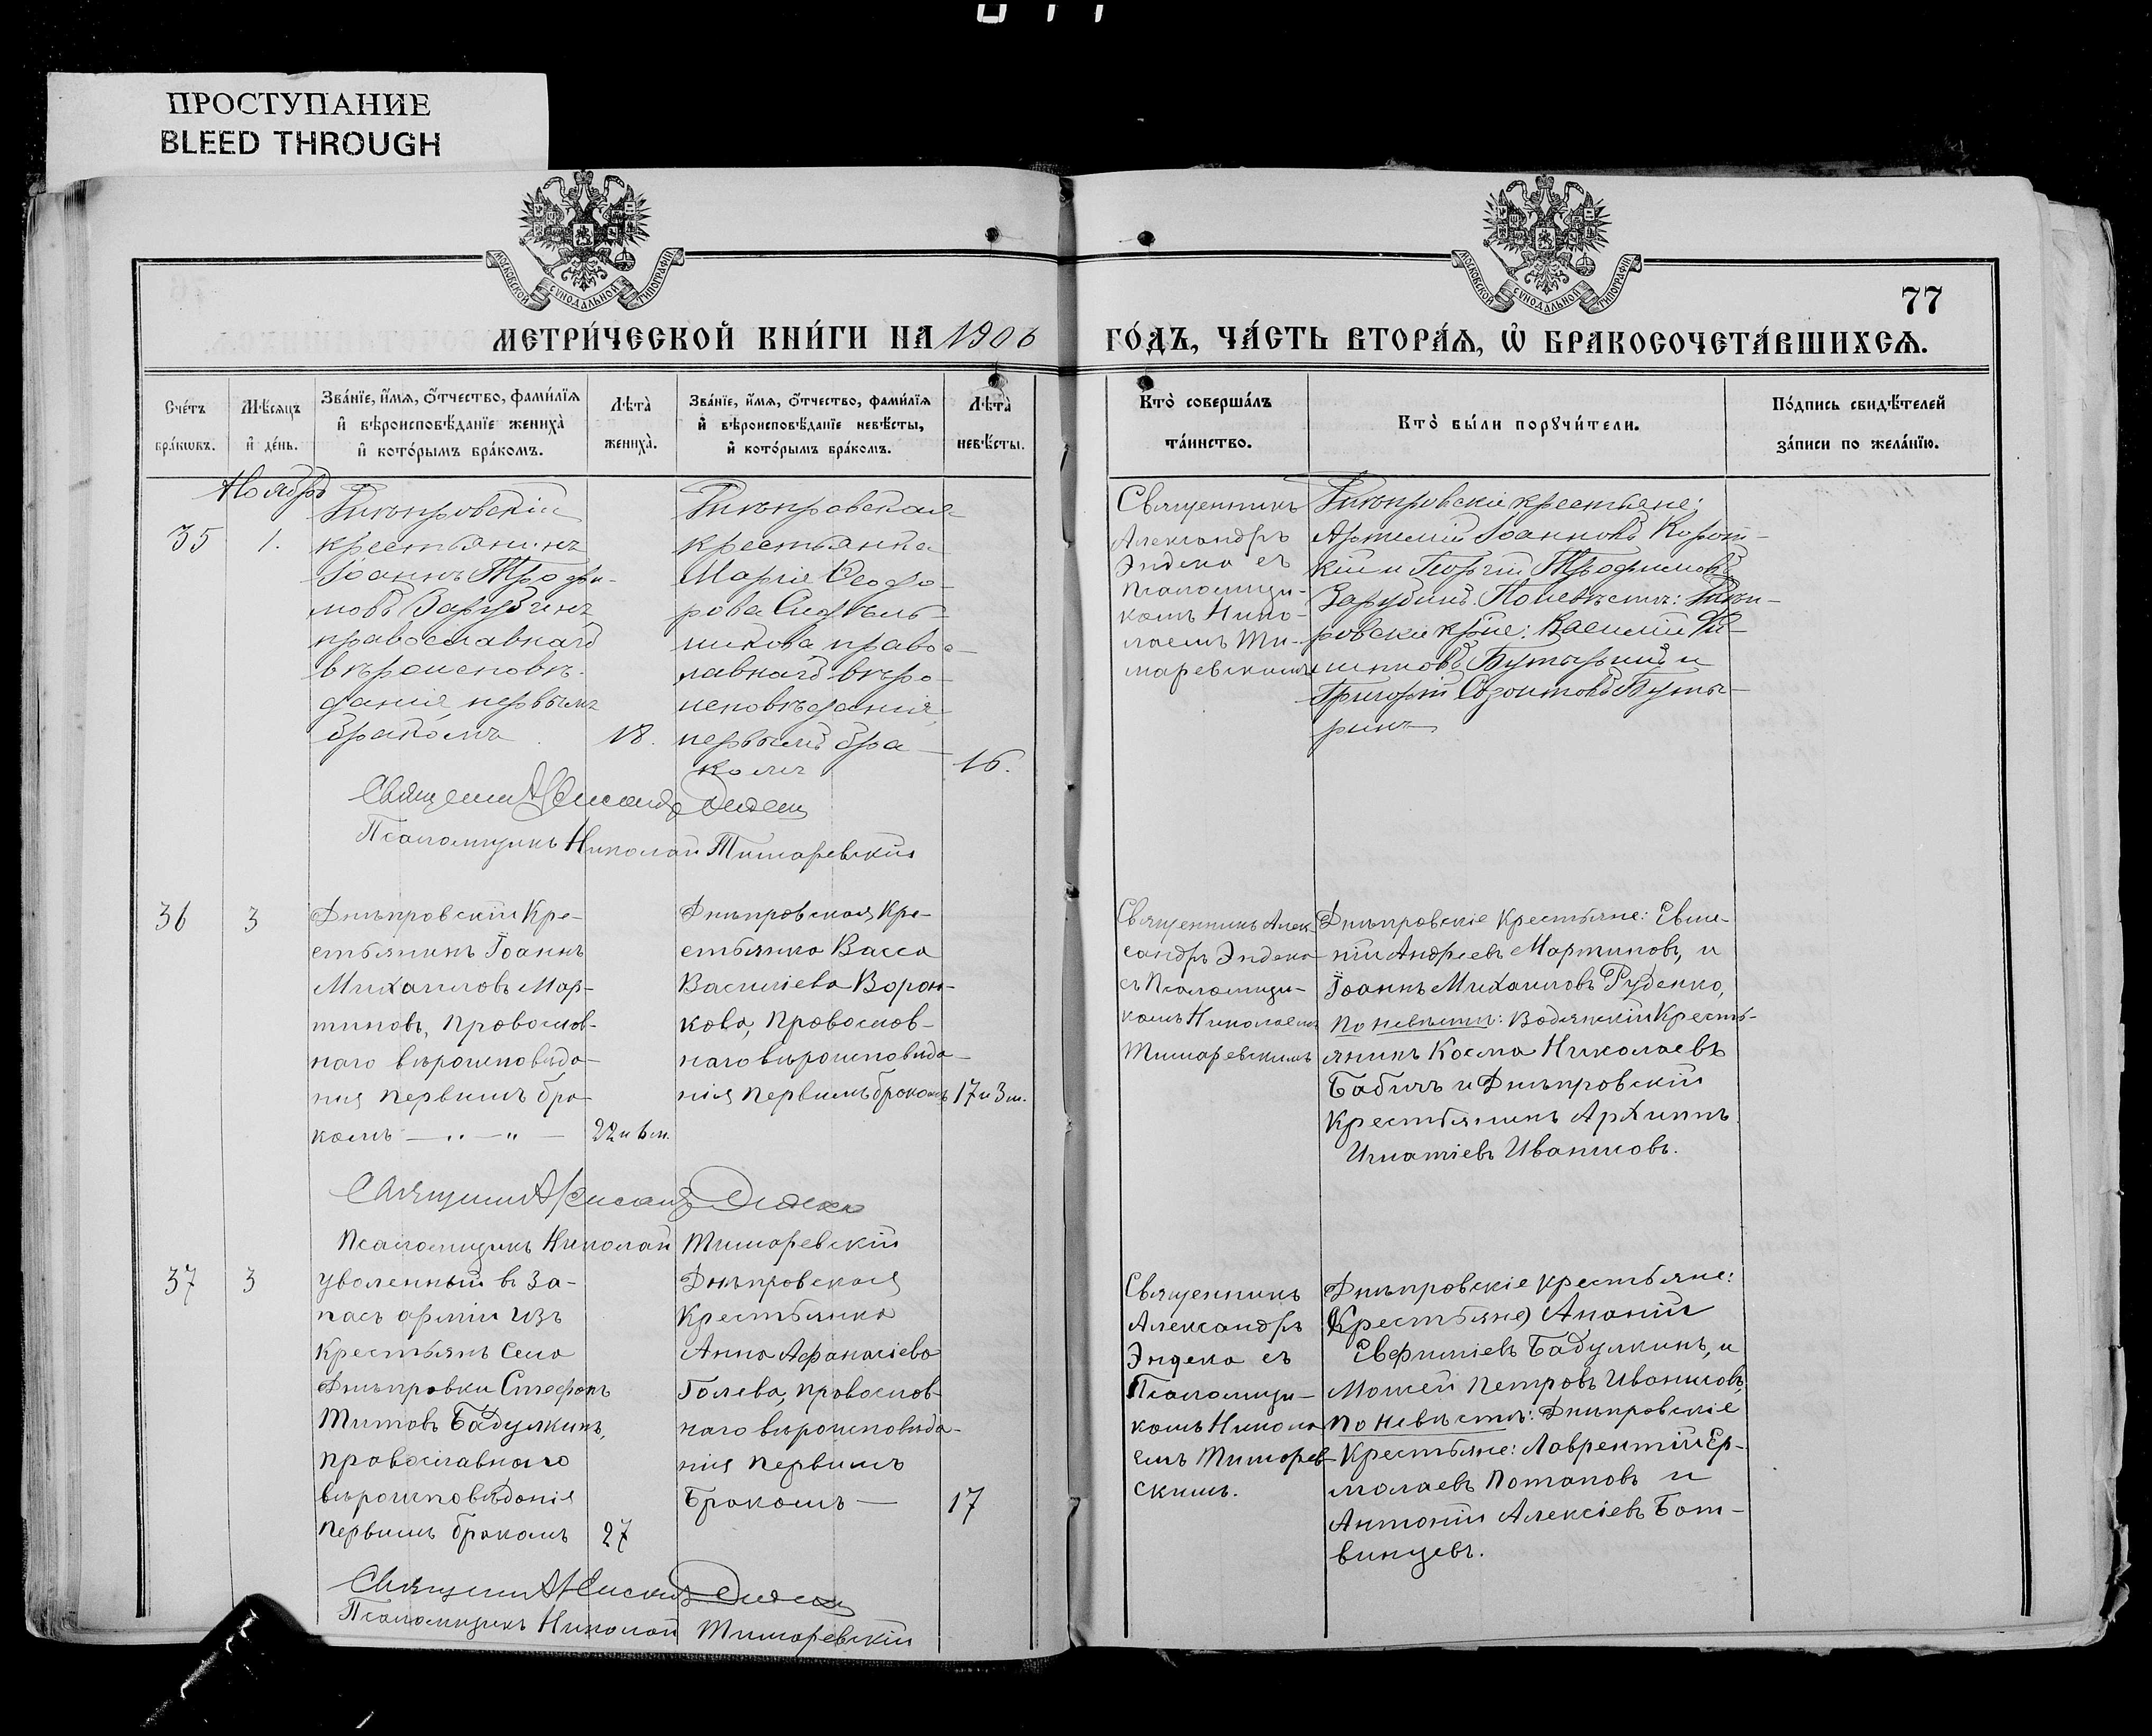 ПРОСТУПАНИЕ
BLEED THROUGH
МОСКОВСКОЙ СѴНОДАЛЬНОЙ ТИПОГРАФІИ
МОСКОВСКОЙ СѴНОДАЛЬНОЙ ТИПОГРАФІИ
77
МЕТРИ́ЧЕСКОЙ КНИ́ГИ НА 1906
ГО́ДЪ, ЧА́СТЬ ВТОРА́Ѧ, Ѡ҆ БРАКОСОЧЕТА́ВШИХСѦ.
Сче́тъ
бра́кѡвъ.
Мѣ́сѧцъ
и҆ де́нь.
Зва́нїе, и҆́мѧ, ѻ҆́тчество, фами́лїѧ
и҆ вѣроисповѣ́данїе жениха̀
и҆ кото́рымъ бра́комъ.
Лѣта̀
жениха̀.
Зва́нїе, и҆́мѧ, ѻ҆́тчество, фами́лїѧ
и҆ вѣроисповѣ́данїе невѣ́сты,
и҆ кото́рымъ бра́комъ.
Лѣта̀
невѣ́сты.
Кто̀ соверша́лъ
та́инство.
Кто̀ бы́ли порꙋчи́тели.
По́дпись свидѣ́телей
за́писи по жела́нїю.
Ноябрь
35
1.
Днѣпровскій
крестьянинъ
Іоаннъ Трофи-
мовъ Зарубинъ
православнаго
вѣроисповѣ-
данія, первымъ
бракомъ
18.
Днѣпровская
крестьянка
Марія Ѳеодо-
рова
православ
наго вѣро-
исповѣданія,
первымъ бра-
комъ
16.
Священникъ
Александръ
Эндека съ
Псаломщи-
комъ Нико-
лаемъ Ти-
маревскимъ
Днѣпровскіе крестьяне:
Артемій Іоанновъ Корот-
кій и Георгій Трофимовъ
Зарубинъ. По невѣстѣ: Днѣп-
ровскіе кр-не: Василій
Бутыринъ и
Григорій Созонтовъ Буты-
ринъ
Священникъ Александръ Эндека
Псаломщикъ Николай Тимаревскій
36
3
Днѣпровскій Кре-
стьянинъ Іоаннъ
Михаиловъ Мар-
тиновъ, православ-
наго вѣроисповѣда-
нія первымъ бра-
комъ — „ — „ —
22 и 6 м.
Днѣпровская Кре-
стьянка Васса
Василіева Ворон-
кова, Православ-
наго вѣроисповѣда-
нія первымъ бракомъ
17 и 3 м.
Священникъ Алек
сандръ Эндека
съ Псаломщи-
комъ Николаемъ
Тимаревскимъ
Днѣпровскіе Крестьяне: Евме-
ній Андреевъ Мартиновъ, и
Іоаннъ Михаиловъ Руденко,
По невѣстѣ: Водянскій Кресть-
янинъ Косма Николаевъ
Бабичъ и Днѣпровскій
Крестьянинъ Архиппъ
Игнатіевъ Иваниковъ.
Священникъ Александръ Эндека
Псаломщикъ Николай Тимаревскій
37
3
Уволенный въ За-
пасъ арміи изъ
Крестьянъ Села
Днѣпровки Стефанъ
Титовъ Бадулкинъ,
Православнаго
вѣроисповѣданія
Первымъ бракомъ
27
Днѣпровская
Крестьянка
Анна Афанасіева
Голева, православ-
наго вѣроисповѣда-
нія Первымъ
Бракомъ —
17
Священникъ
Александръ
Эндека съ
Псаломщи-
комъ Никола
емъ Тимарев-
скимъ.
Днѣпровскіе крестьяне:
(Крестьяне) Ананій
Евфиміевъ Бадулкинъ, и
Моисей Петровъ Иваниковъ,
По невѣстѣ: Днѣпровскіе
Крестьяне: Лаврентій Ер-
молаевъ Потаповъ и
Антоній Алексіевъ Бот-
винцевъ.
Священникъ Александръ Эндека
Псаломщикъ Николай Тимаревскій